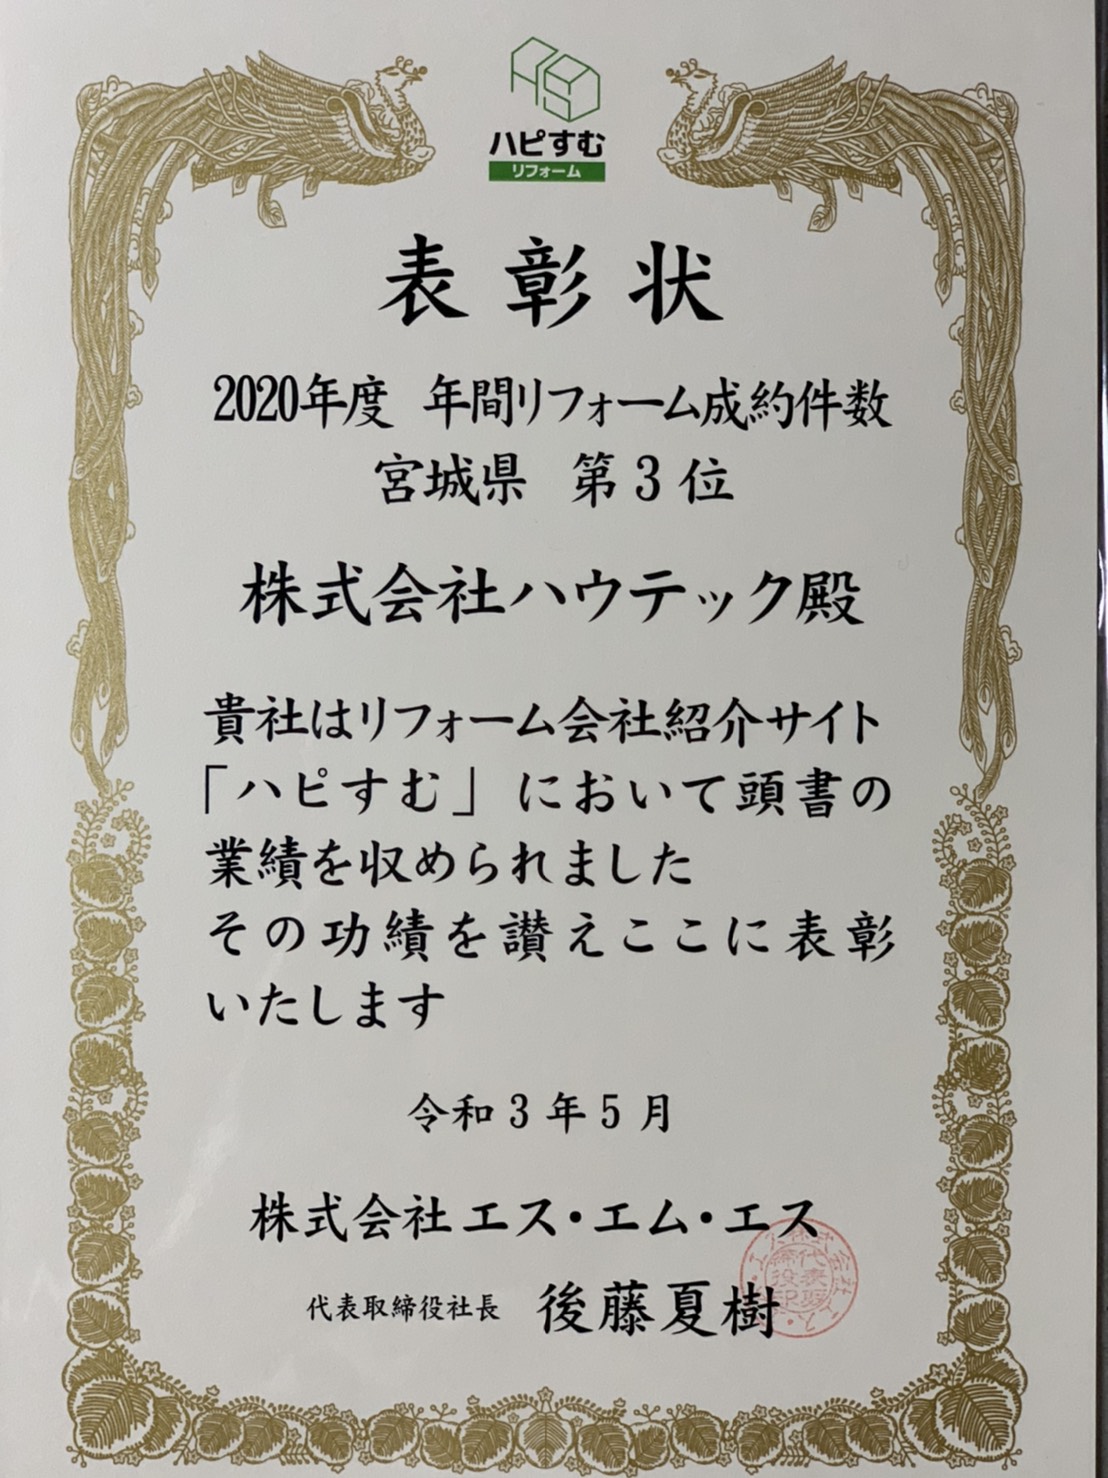 ハピすむ
リフォーム
表彰状
2020年度 年間リフォーム成約件数
宮城県 第3位
株式会社ハウテック殿
貴社はリフォーム会社紹介サイト
「ハピすむ」において頭書の
業績を収められました
その功績を讃えここに表彰
いたします
令和3年5月
株式会社エス・エム・エス
代表取締役社長 後藤夏樹